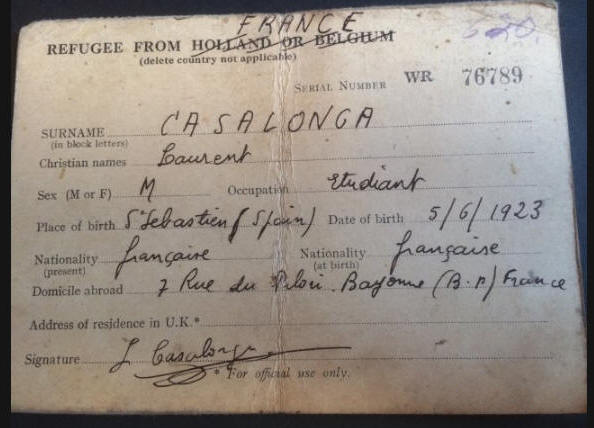 FRANCE
REFUGEE FROM HOLLAND OR BELGIUM
(delete country not applicable)
620
SERIAL NUMBER WR 76789
SURNAME CASALONGA
(in block letters)
Christian names Laurent
Sex (M or F) M Occupation Etudiant
Place of birth St Sebastien (Spain) Date of birth 5/6/1923
Nationality française Nationality française
(present) (at birth)
Domicile abroad 7 Rue du Pilori. Bayonne (B.P) France
Address of residence in U.K.*
Signature L Casalonga
* For official use only.